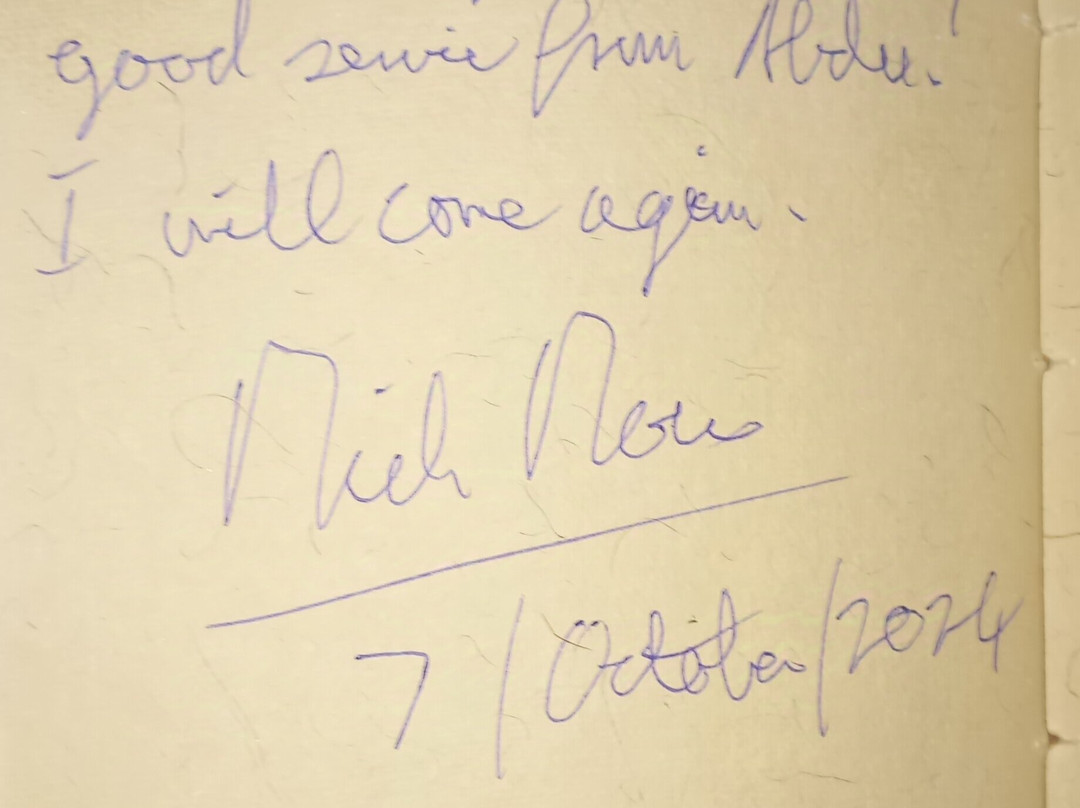 good service from Abdu!
I will come again.
7/October/2024